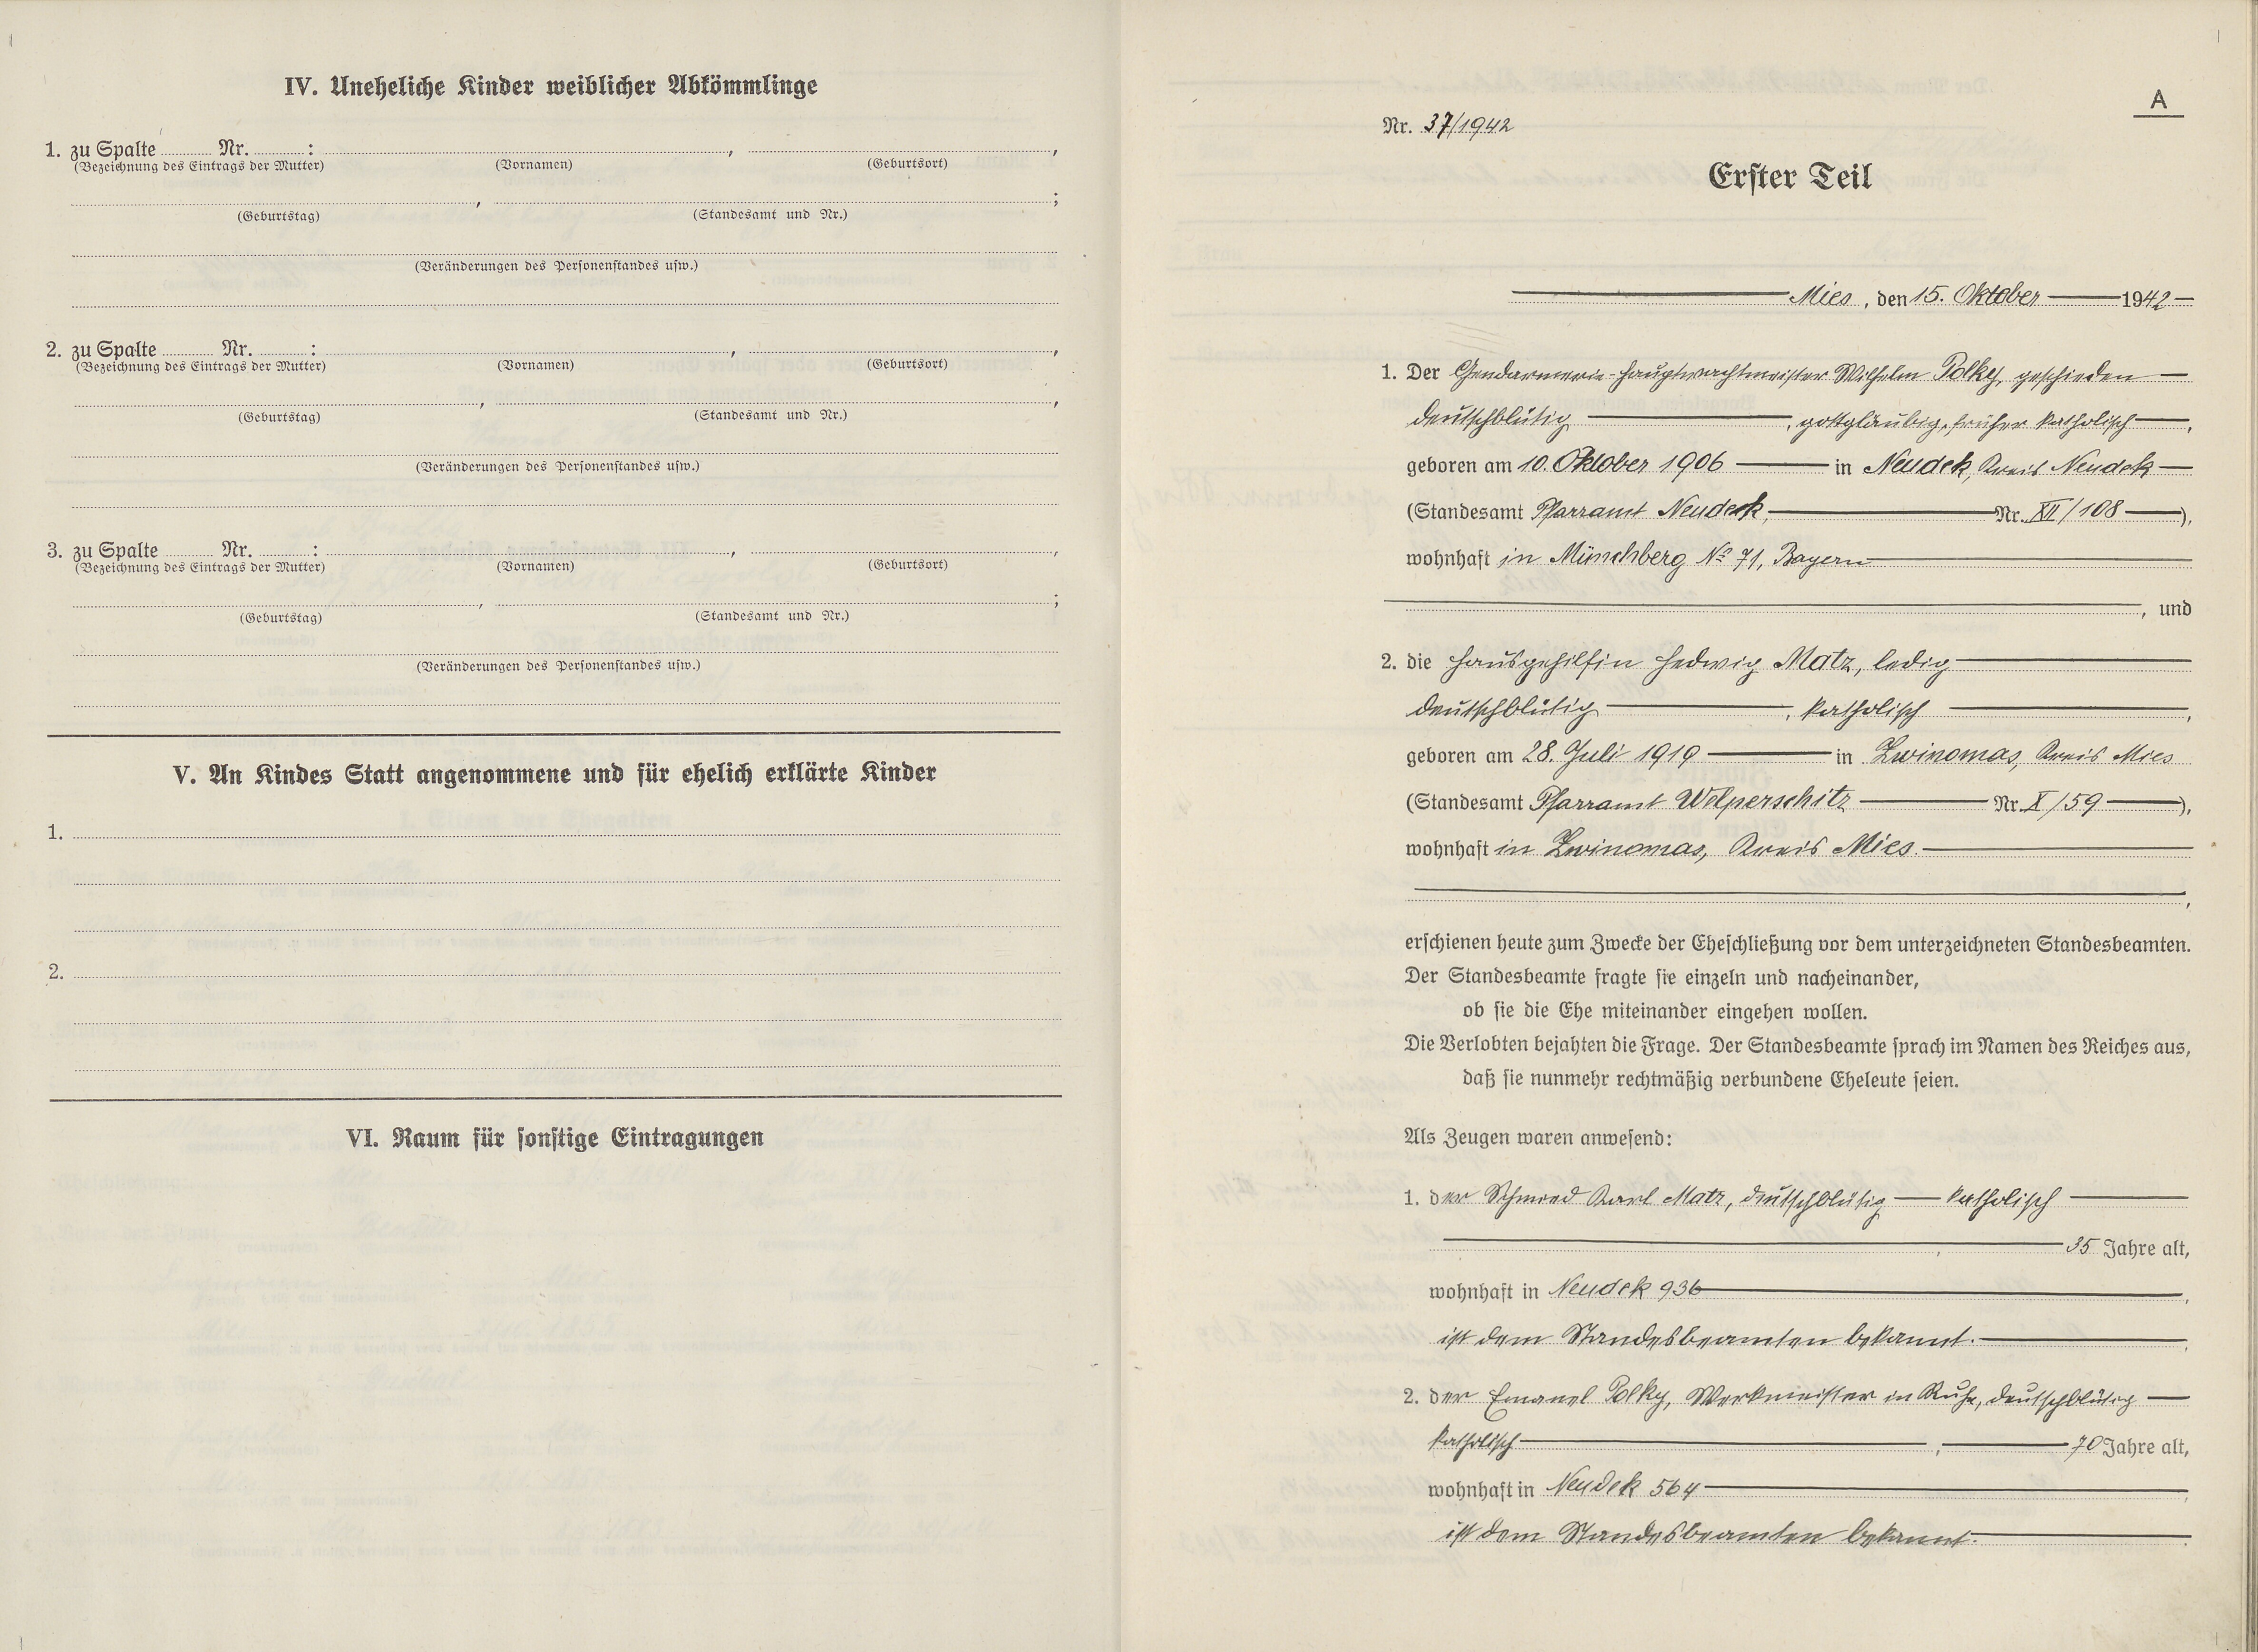 IV. Uneheliche Kinder weiblicher Abkömmlinge
1. zu Spalte ........ Nr. ........ : ........ , ........ ,
(Bezeichnung des Eintrags der Mutter) (Vornamen) (Geburtsort)
........ , ........ ;
(Geburtstag) (Standesamt und Nr.)
(Veränderungen des Personenstandes usw.)
2. zu Spalte ........ Nr. ........ : ........ , ........ ,
(Bezeichnung des Eintrags der Mutter) (Vornamen) (Geburtsort)
........ , ........ ,
(Geburtstag) (Standesamt und Nr.)
(Veränderungen des Personenstandes usw.)
3. zu Spalte ........ Nr. ........ : ........ , ........ ,
(Bezeichnung des Eintrags der Mutter) (Vornamen) (Geburtsort)
........ , ........ ;
(Geburtstag) (Standesamt und Nr.)
(Veränderungen des Personenstandes usw.)
V. An Kindes Statt angenommene und für ehelich erklärte Kinder
1.
2.
VI. Raum für sonstige Eintragungen
A
Nr. 37/1942
Erster Teil
Mies, den 15. Oktober 1942
1. Der Gendarmerie-Hauptwachtmeister Wilhelm Polky, geschieden
deutschblütig, gottgläubig, früher katholisch,
geboren am 10. Oktober 1906 in Neudek, Kreis Neudek
(Standesamt Pfarramt Neudek, Nr. XII/108),
wohnhaft in Münchberg No 71, Bayern
, und
2. die Hausgehilfin Hedwig Matz, ledig
deutschblütig, katholisch,
geboren am 28. Juli 1919 in Zwinomas, Kreis Mies
(Standesamt Pfarramt Welperschitz Nr. X/59),
wohnhaft in Zwinomas, Kreis Mies.
,
erschienen heute zum Zwecke der Eheschließung vor dem unterzeichneten Standesbeamten.
Der Standesbeamte fragte sie einzeln und nacheinander,
ob sie die Ehe miteinander eingehen wollen.
Die Verlobten bejahten die Frage. Der Standesbeamte sprach im Namen des Reiches aus,
daß sie nunmehr rechtmäßig verbundene Eheleute seien.
Als Zeugen waren anwesend:
1. der Schmied Karl Matz, deutschblütig — katholisch
, 35 Jahre alt,
wohnhaft in Neudek 936,
ist dem Standesbeamten bekannt.
2. der Emanel Polky, Werkmeister in Ruhe, deutschblütig
katholisch, 70 Jahre alt,
wohnhaft in Neudek 564,
ist dem Standesbeamten bekannt.